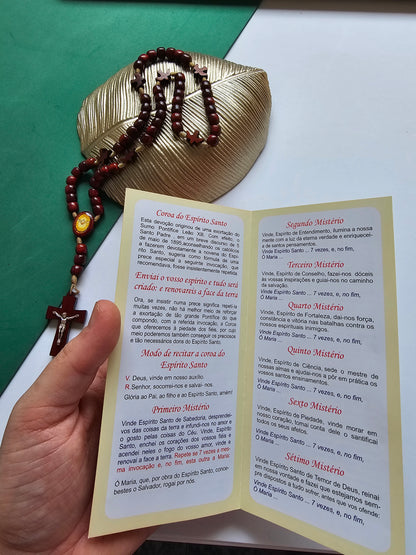 Coroa do Espírito Santo
Esta devoção originou de uma exortação do
Sumo Pontífice Leão XIII. Com efeito, o
Santo Padre em um breve discurso de 5
de maio de 1895, aconselhando os católicos
a fazerem devotamente a novena do Espírito
Santo, sugeria como fórmula de uma
prece especial a seguinte invocação, que
recomendava, fosse insistentemente repetida
Enviai o vosso espírito e tudo será
criado: e renovareis a face da terra
Ora, se insistir numa prece significa repeti-la
muitas vezes, não há melhor meio de reforçar
a exortação de tão grande Pontífice do que
compondo, com a referida invocação, a Coroa
que oferecemos à piedade dos fiéis, por cujo
meio poderemos também conseguir os preciosos
e tão necessários dons do Espírito Santo.
Modo de recitar a coroa do
Espírito Santo
V. Deus, vinde em nosso auxílio.
R. Senhor, socorrei-nos e salvai-nos.
Glória ao Pai, ao filho e ao Espírito Santo, amém!
Primeiro Mistério
Vinde Espírito Santo de Sabedoria, desprendei-
vos das coisas da terra e infundi-nos no amor e
o gosto pelas coisas do Céu. Vinde, Espírito
Santo, enchei os corações dos vossos fiéis e
acendei neles o fogo do vosso amor, vinde e
renovai a face a terra. Repete se 7 vezes a mes-
ma invocação e, no fim, esta outra a Maria:
Ó Maria, que, por obra do Espírito Santo, conce-
bestes o Salvador, rogai por nós.
Segundo Mistério
Vinde, Espírito de Entendimento, iluminai a nossa
mente com a luz da eterna verdade e enriquecei-
a de santos pensamentos.
Vinde Espírito Santo ... 7 vezes, e, no fim,
Ó Maria ...
Terceiro Mistério
Vinde, Espírito de Conselho, fazei-nos dóceis
às vossas inspirações e guiai-nos no caminho
da salvação.
Vinde Espírito Santo ... 7 vezes, e, no fim,
Ó Maria ...
Quarto Mistério
Vinde, Espírito de Fortaleza, dai-nos força,
constância e vitória nas batalhas contra os
nossos espirituais inimigos.
Vinde Espírito Santo ... 7 vezes, e, no fim,
Ó Maria ...
Quinto Mistério
Vinde, Espírito de Ciência, sede o mestre de
nossas almas e ajudai-nos a pôr em prática os
vossos santos ensinamentos.
Vinde Espírito Santo ... 7 vezes, e, no fim,
Ó Maria ...
Sexto Mistério
Vinde, Espírito de Piedade, vinde morar em
nosso coração, tomai conta dele e santificai
todos os seus afetos.
Vinde Espírito Santo ... 7 vezes, e, no fim,
Ó Maria ...
Sétimo Mistério
Vinde, Espírito Santo de Temor de Deus, reinai
em nossa vontade e fazei que estejamos sem-
pre dispostos a tudo sofrer, antes que vos ofender.
Vinde Espírito Santo ... 7 vezes, e, no fim,
Ó Maria ...